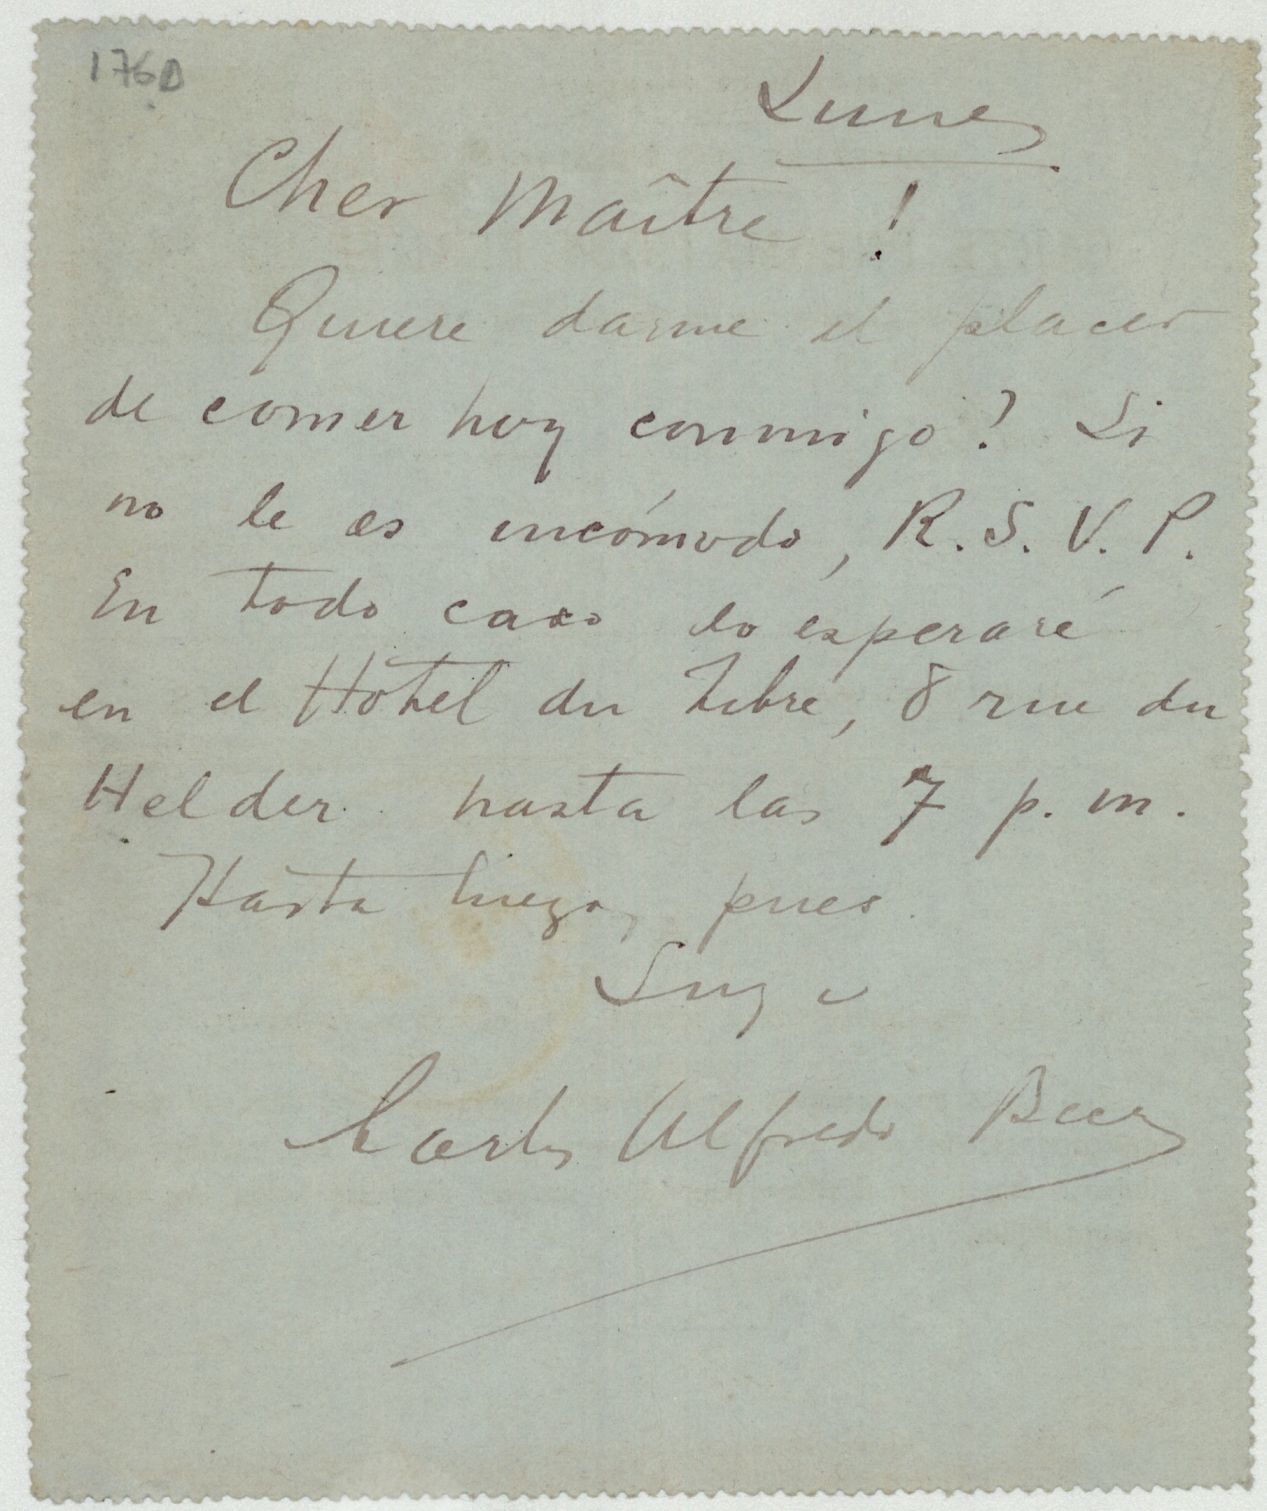 176D
Lunes
Cher Maître !
Quiere darme el placer
de comer hoy conmigo? Si
no le es incómodo, R. S. V. P.
En todo caso lo esperaré
en el Hotel du Tibre, 8 rue du
Helder hasta las 7 p. m.
Hasta luego, pues.
Suyo
Carlos Alfredo Becú